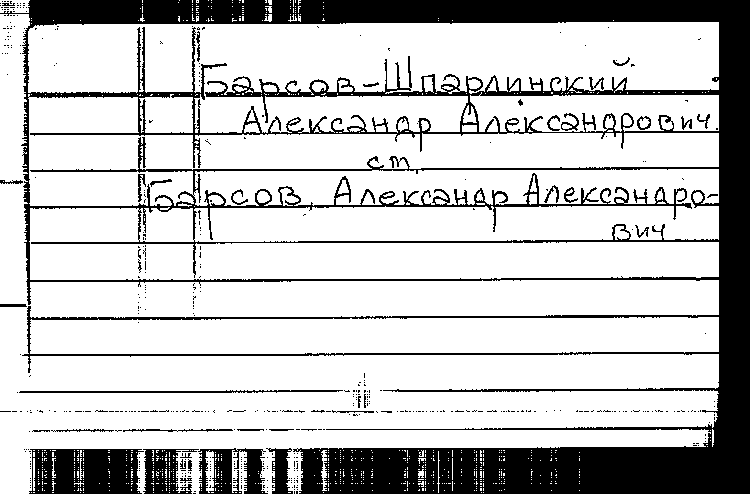 Барсов-Шпарлинский
Александр Александрович.
ст.
Барсов, Александр Александро-
вич